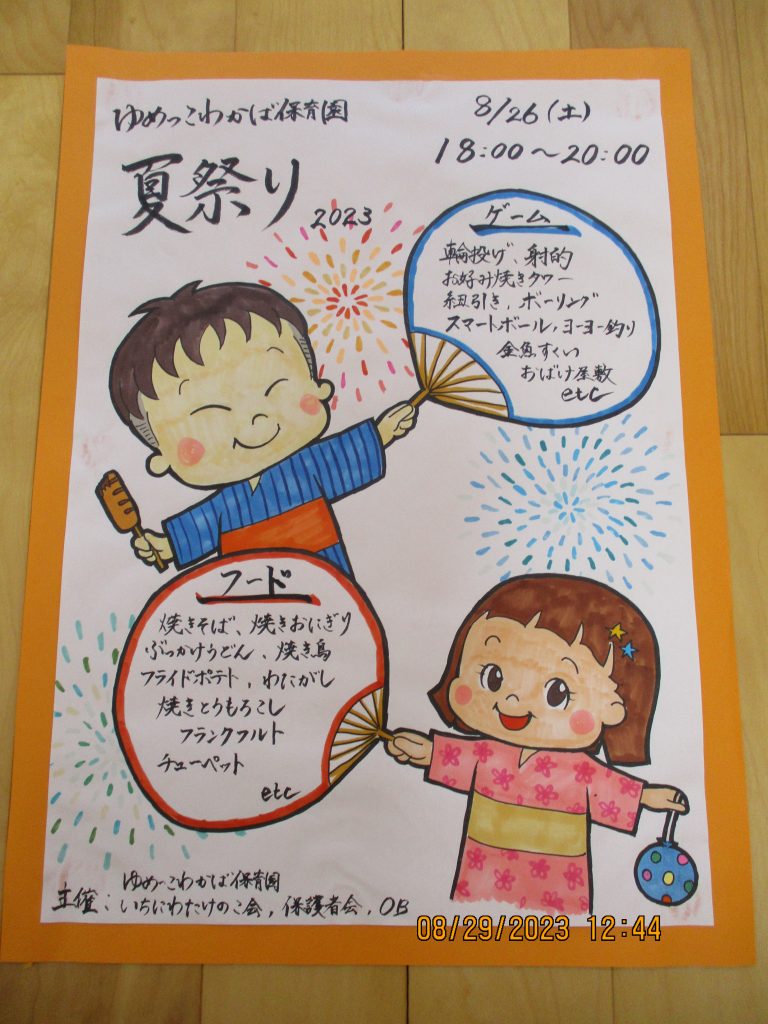 ゆめっこわかば保育園
8/26(土)
18:00～20:00
夏祭り 2023
ゲーム
輪投げ、射的
お好み焼きタワー
紐引き、ボーリング
スマートボール、ヨーヨー釣り
金魚すくい
おばけ屋敷
etc
フード
焼きそば、焼きおにぎり
ぶっかけうどん、焼き鳥
フライドポテト、わたがし
焼きとうもろこし
フランクフルト
チューペット
etc
ゆめっこわかば保育園
主催：いちにわたけのこ会、保護者会、OB
08/29/2023 12:44